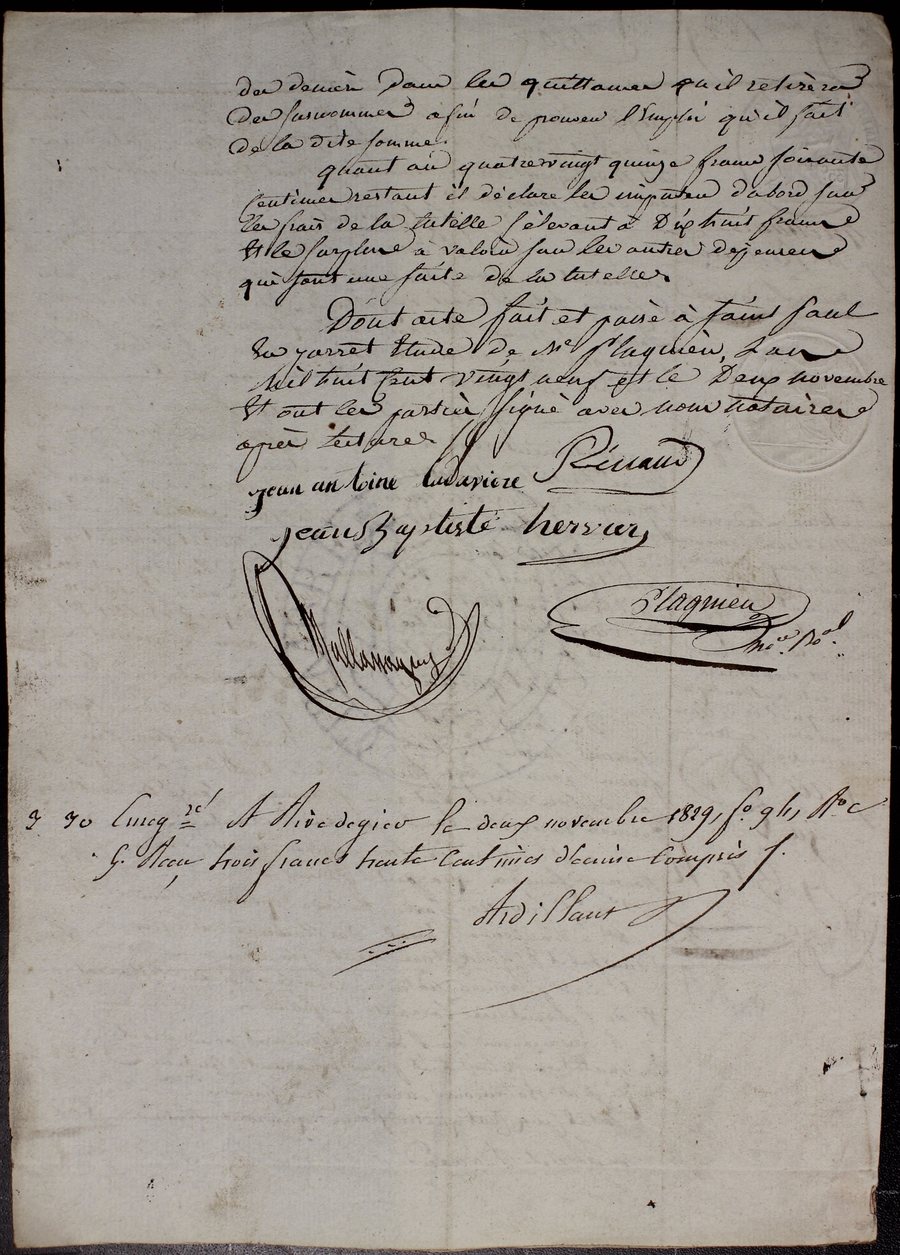 des deniers dans les quittances qu'il retirera
des susnommés afin de prouver l'emploi qu'il fait
de la dite somme.
quant au quatrevingt quinze francs soixante
centimes restant il déclare les imputer d'abord sur
les frais de la tutelle s'élevant à Dix huit francs
Et le surplus à valoir sur les autres dépenses
qui sont une suite de la tutelle
Dont acte fait et passé à saint Paul
En jarret Etude de Me Flaqnieu, L'an
Mil huit cent vingt neuf et le Deux novembre
Et ont les parties signé avec nous notaires
après lecture
jean antoine ladavière Renaud
jean Baptiste hervier
Flaqnieu
nore Ral
3 30 Enregré A Rivedegier le deux novembre 1829, fo 94, Ro C
5. Reçu trois francs trente centimes dixième compris
Ardillaut